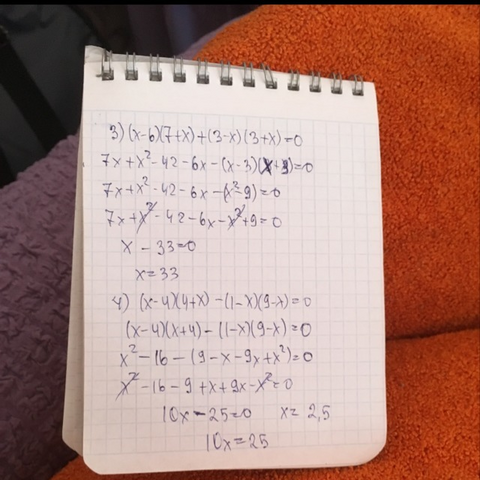 3) (x-6)(7+x)+(3-x)(3+x)=0
7x+x²-42-6x-(x-3)(x+3)=0
7x+x²-42-6x-(x²-9)=0
7x+x²-42-6x-x²+9=0
x-33=0
x=33
4) (x-4)(4+x)-(1-x)(9-x)=0
(x-4)(x+4)-(1-x)(9-x)=0
x²-16-(9-x-9x+x²)=0
x²-16-9+x+9x-x²=0
10x-25=0 x=2,5
10x=25